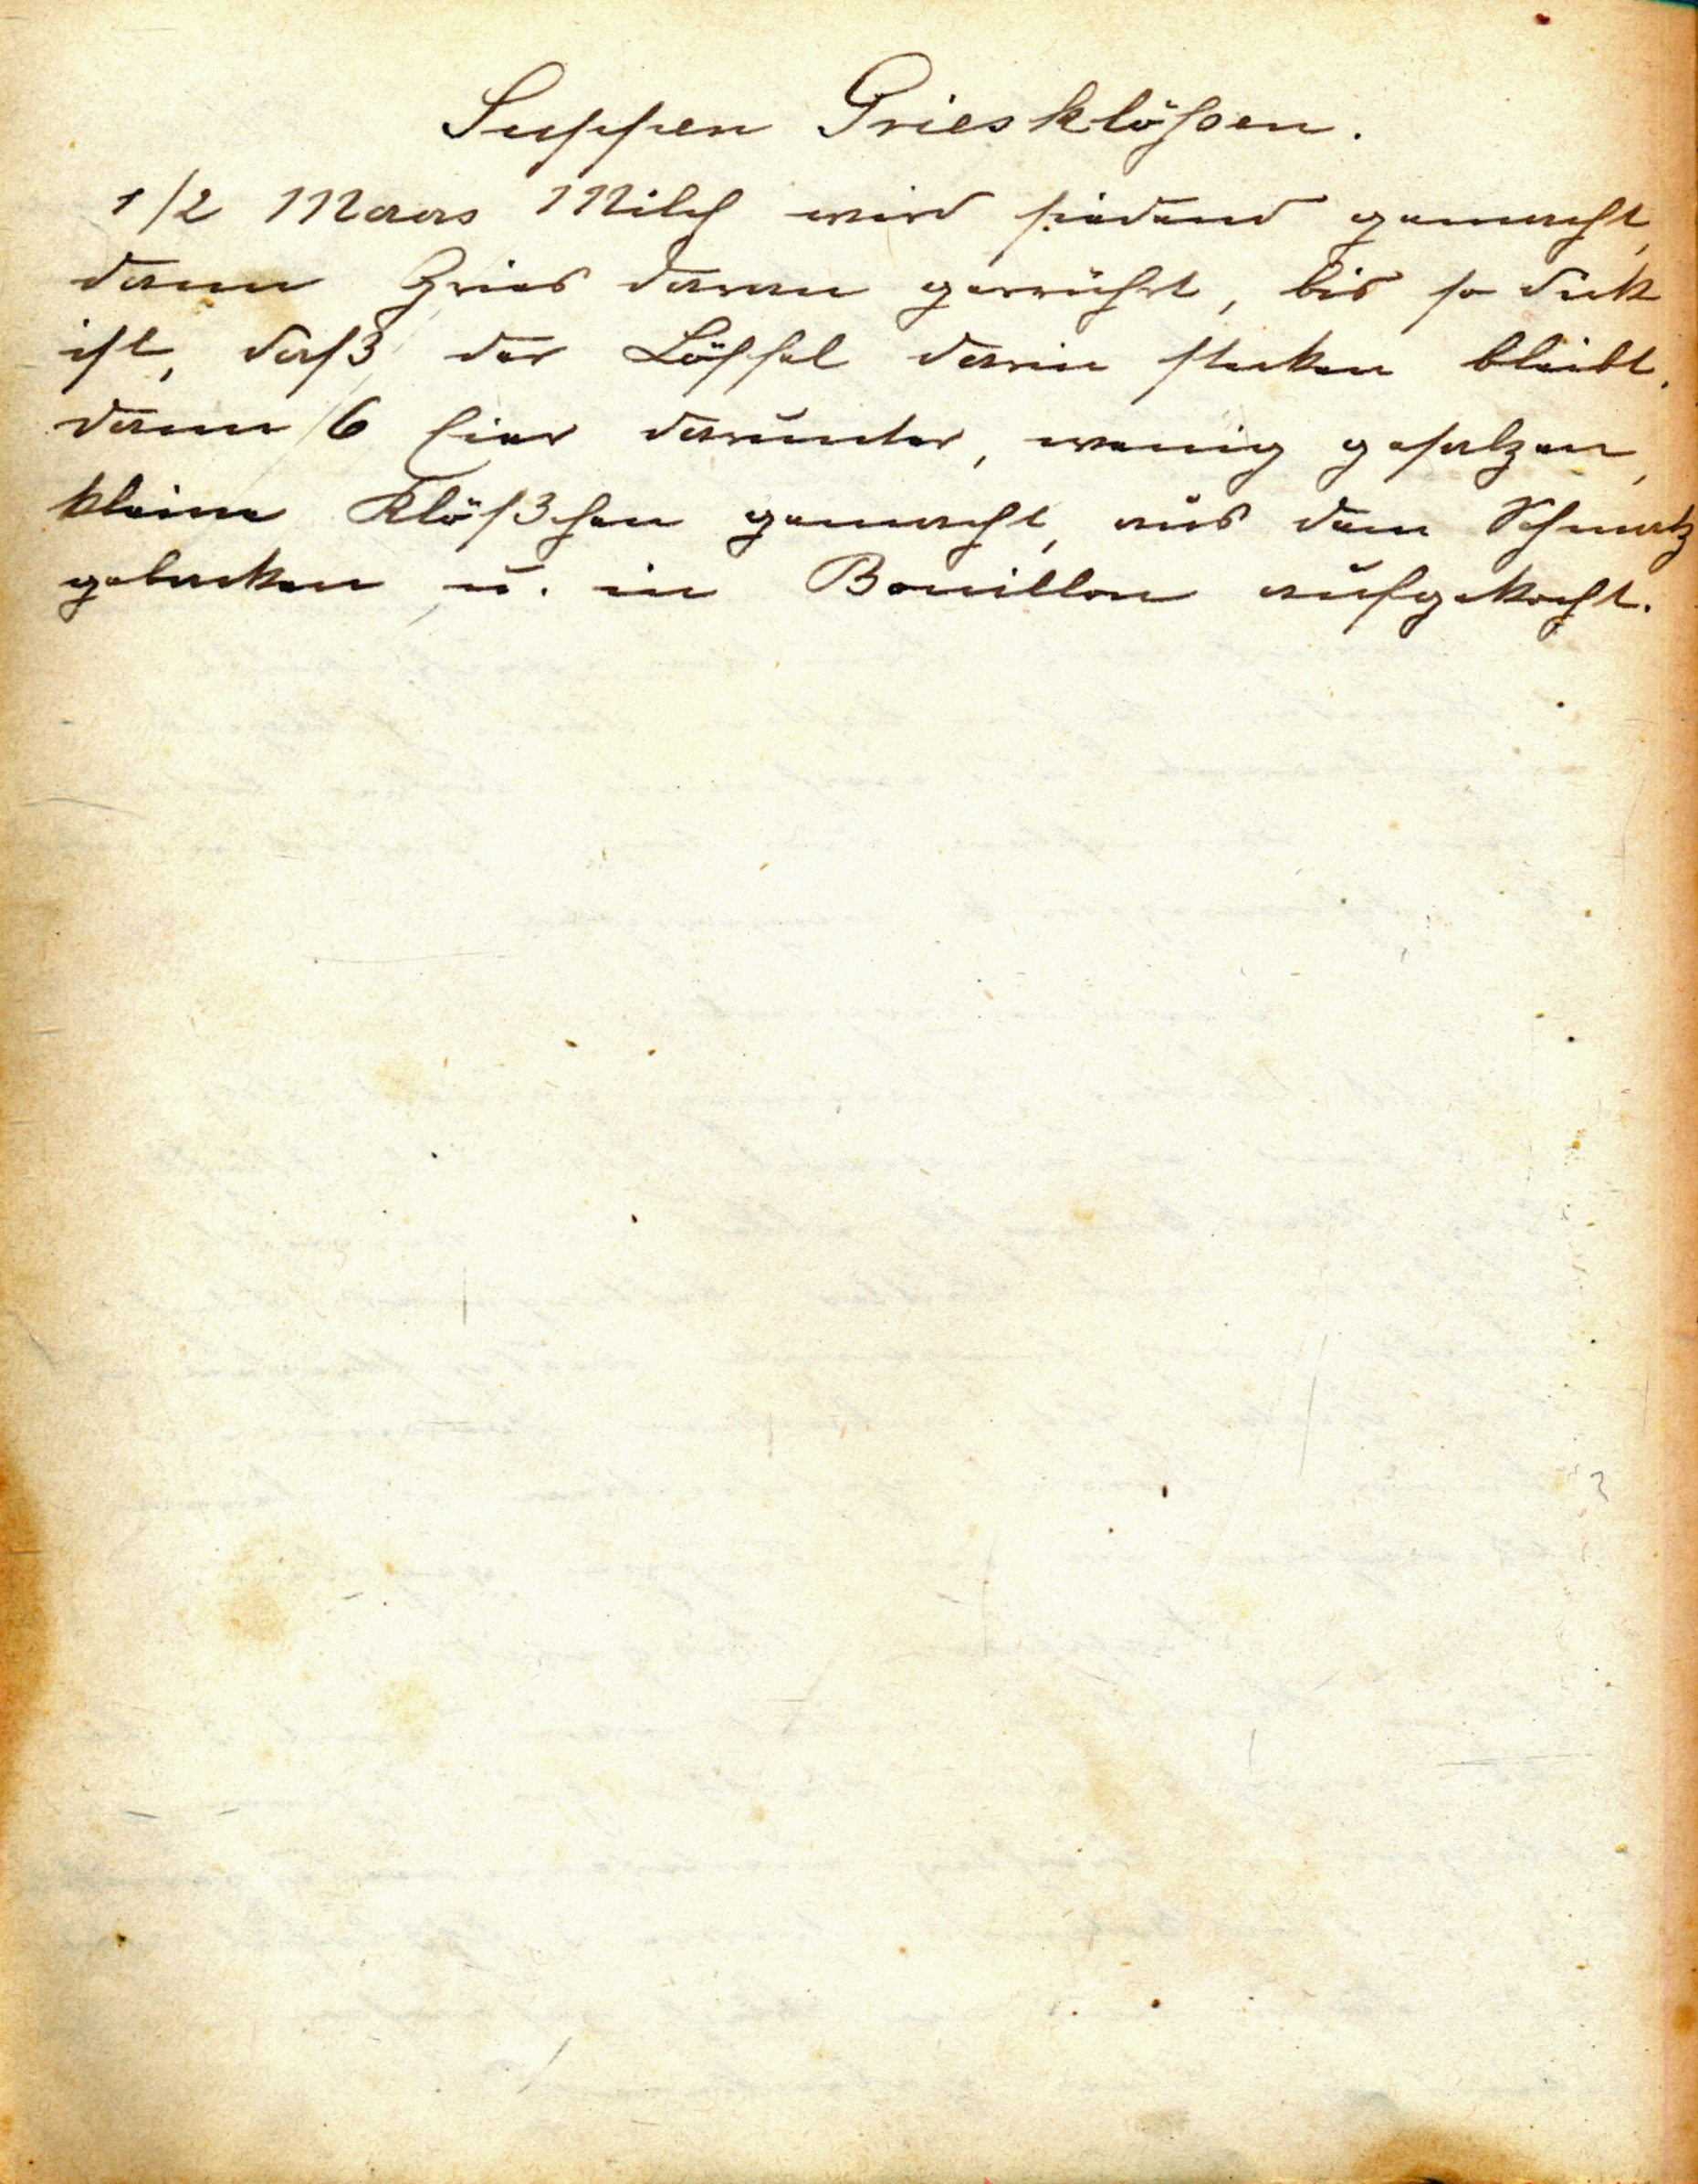 Suppen Griesklößen.
1/2 Maas Milch wird siedend gemacht,
dann Gries daran gerührt, bis so dick
ist, daß der Löffel darin stecken bleibt.
dann 6 Eier darunter, wenig gesalzen,
kleine Klößchen gemacht, aus dem Schmalz
gebacken u. in Bouillon aufgekocht.